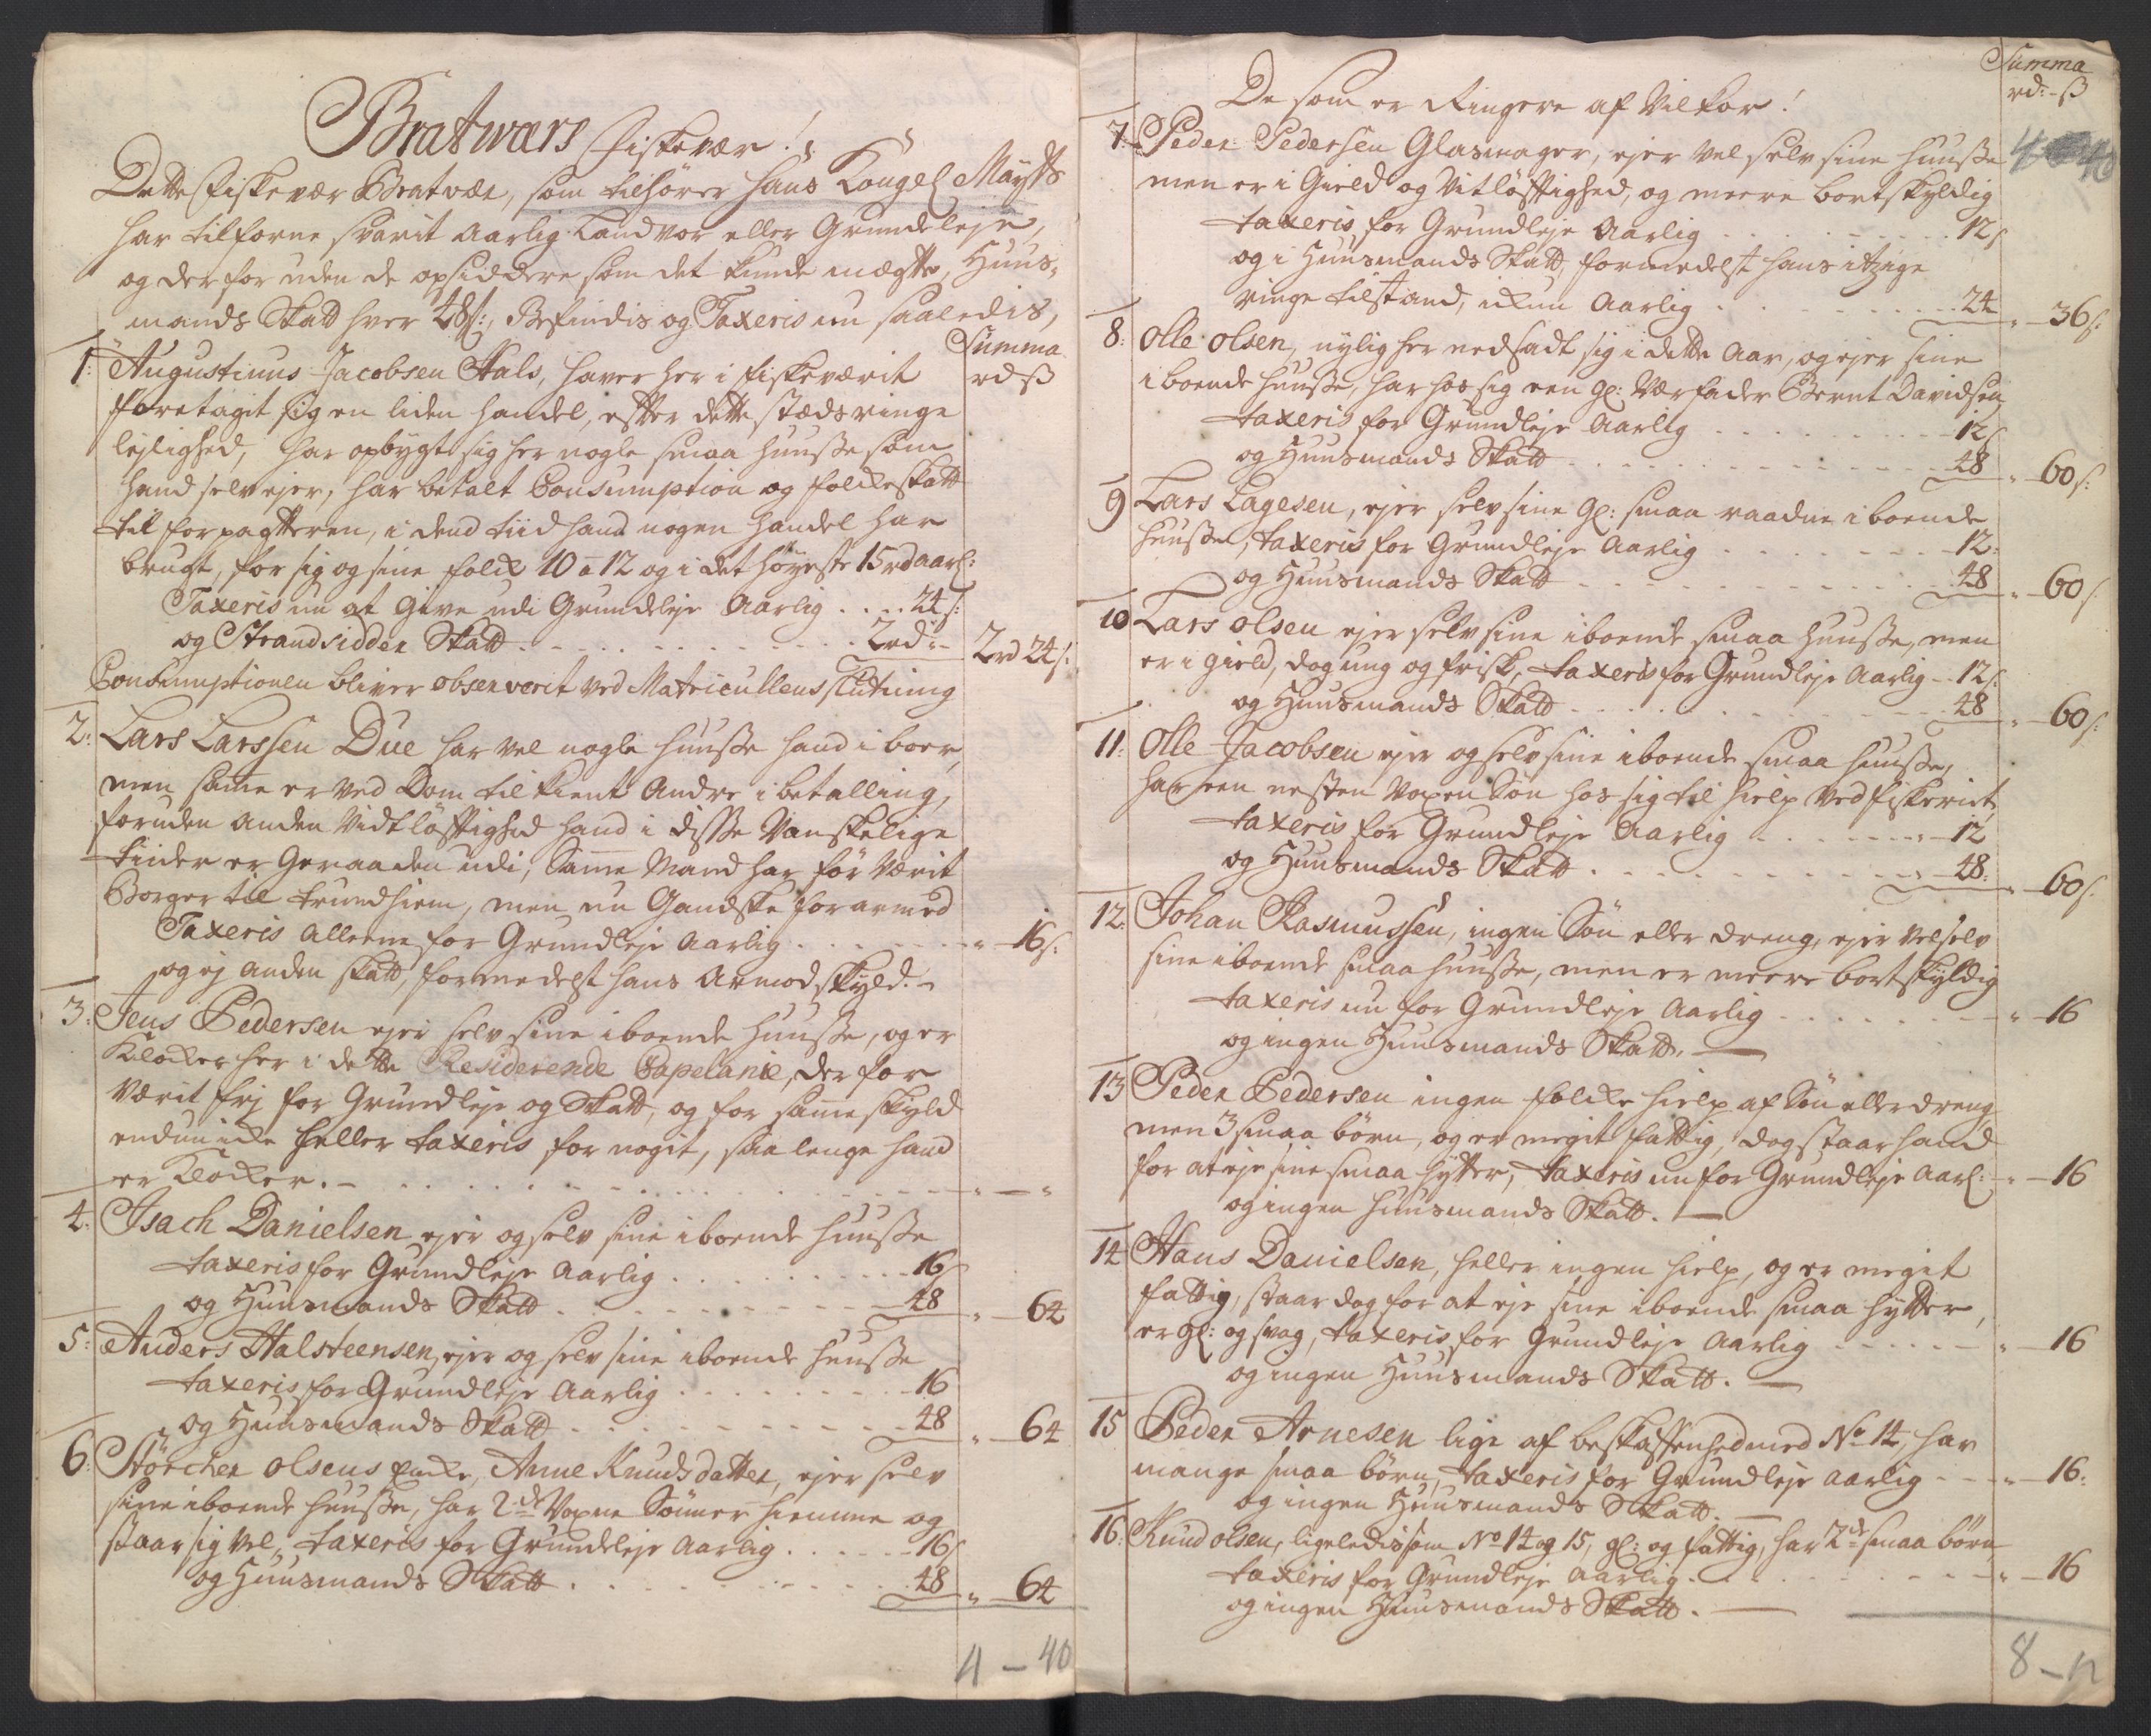 Bratwærs Fiskevær!
Dette Fiskevær Bratvær, som tilhörer Hans Kongel Mayts
har tilforne svarit Aarlig Landvor eller Grundeleje,
og der for uden de opsiddere som det kunde mægte, Huus-
mands Skatt hver 48s:, Befindis og Taxeris nu saaledis,
Summa
rd ß
1: Augustinus Jacobsen Stals, haver her i fiskeværit
foretagit sig en liden handel, efter dette stæds ringe
lejlighed, har opbygt sig her nogle smaa huusse som
hand selv ejer, har betalt Consumption og folkeskatt
til forpagteren, i dend tiid hand nogen handel har
brugt, for sig og sine folck 10 a 12 og i det höyeste 15 rd aarl:
Taxeris nu at Give udi Grundleje Aarlig . . . . 24 s:
og Strandsidder Skatt . . . . 2rd: - 2rd 24 s:
Consumptionen bliver observerit ved Matricullens slutning
2: Lars Larssen Due har vel nogle huusse hand i boer,
men samme er ved Dom tilkient Andre i betalling,
foruden anden Vidtløftighed hand i disse Vanskelige
tiider er Geraaden udi, Samme Mand har för Værit
Borger til Trundhiem, men nu Gandske forarmed
Taxeris alleene for Grundleje Aarlig . . . . " - 16 s:
og ej anden skatt, formedelst hans Armod skyld. -
3: Jens Pedersen ejer selv sine iboende huusse, og er
Klocker her i dette Residerende Capelanie, der for
Værit frj for Grundleje og Skatt, og for samme skyld
endnu icke heller taxeris for nogit, saa lenge hand
er Klocker. - . . . . " — "
4: Isach Danielsen ejer og selv sine iboende huusse
taxeris for Grundleje Aarlig . . . . 16 s
og Huusmands Skatt . . . . 48 " - 64
5: Anders Halsteensen, ejer og selv sine iboende huusse
taxeris for Grundleje Aarlig . . . . 16
og Huusmands Skatt . . . . 48 " - 64
6: Störcher olsens Encke, Anne Knudsdatter, ejer selv
sine iboende huusse, har 2de Voxne Sönner hiemme og
staar sig vel, taxeris for Grundeleje Aarlig . . . . 16 s
og Huusmands Skatt . . . . 48 " - 64
4 - 40
Summa
rd: - ß
De som er Ringere af Vilkor!
4 40
7: Peder Pedersen Glasmager, ejer vel selv sine huusse
men er i Gield og Vitløfftighed, og meere bortskyldig
taxeris for Grundleje Aarlig . . . . 12 s
og i Huusmands Skatt, formedelst hans itzige
ringe tilstand, ickun Aarlig . . . . 24 " - 36 s:
8: Olle olsen, nylig her nedsadt sig i dette Aar, og ejer sine
iboende huusse, har hos sig een gl: Værfader Bernt Davidsen
taxeris for Grundleje Aarlig . . . . 12 s
og Huusmands Skatt . . . . 48 " - 60 s:
9 Lars Lagesen, ejer selv sine gl: smaa raadne iboende
huusse, taxeris for Grundleje Aarlig . . . . 12:
og Huusmands Skatt . . . . 48 " - 60 s
10 Lars olsen ejer selv sine iboende smaa huusse, men
er i gield, dog ung og frisk, taxeris for Grundleje Aarlig - 12 s:
og Huusmands Skatt . . . . 48 " - 60 s:
11: Olle Jacobsen ejer og selv sine iboende smaa huusse,
har een nesten Voxen Sön hos sig til hielp ved fiskeriet,
taxeris for Grundleje Aarlig . . . . 12
og Huusmands Skatt . . . . 48: " - 60 s.
12: Johan Rasmussen, ingen Sön eller dreng, ejer vel selv
sine iboende smaa huusse, men er meere bortskyldig
taxeris nu for Grundleje Aarlig . . . . " - 16
og ingen Huusmands Skatt. —
13 Peder Pedersen ingen folcke hielp af Sön eller dreng,
men 3 smaa börn, og er megit fattig, dog staar hand
for at eje sine smaa hytter, taxeris nu for Grundleje Aarl: " - 16
og ingen huusmands Skatt. —
14 Hans Danielsen, heller ingen hielp, og er megit
fattig, staar dog for at eje sine iboende smaa hytter,
er gl: og svag, taxeris for Grundleje Aarlig . . . . " - 16
og ingen Huusmands Skatt. —
15 Peder Arnesen lige af beskaffenhed med No 14, har
mange smaa börn, taxeris for Grundleje Aarlig - - " - 16:
og ingen Huusmands Skatt. —
16: Knud olsen, ligeledis som No 14 og 15, gl: og fattig, har 2de smaa börn
taxeris for Grundleje Aarlig . . . . " - 16
og ingen Huusmands Skatt. —
8 - 12